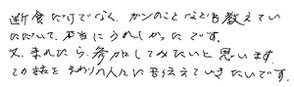 断食だけでなく、ガンのことなども教えてい
ただいて、本当にうれしかったです。
又、来れたら、参加してみたいと思います。
この話をまわりの人たちにも伝えていきたいです。